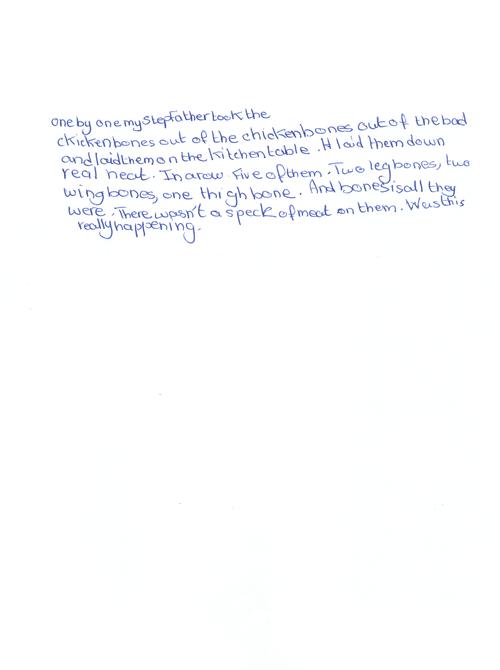 one by one my stepfather took the
chickenbones out of the chickenbones out of the bad
and laid them on the kitchen table. H laid them down
real neat. In a row. Five of them. Two leg bones, two
wing bones, one thigh bone. And bones is all they
were. There wasn't a speck of meat on them. Was this
really happening.